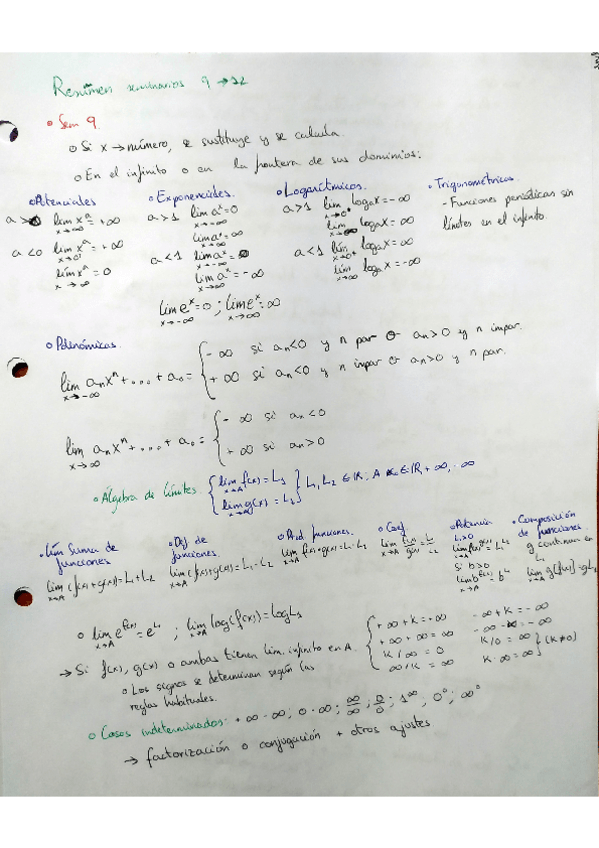 Resúmen seminarios 9 → 12
• Sem 9.
o Si x → número, se sustituye y se calcula.
o En el infinito o en la frontera de sus dominios:
o Potenciales
a > 0 lim x^a = +∞
x→∞
a < 0 lim x^a = +∞
x→0⁺
lim x^a = 0
x→∞
o Exponenciales.
a > 1 lim a^x = 0
x→-∞
lim a^x = ∞
x→∞
a < 1 lim a^x = ∞
x→-∞
lim a^x = -∞
x→∞
lim e^x = 0 ; lim e^x = ∞
x→-∞ x→∞
o Logarítmicos.
a > 1 lim logₐx = -∞
x→0⁺
lim logₐx = ∞
x→∞
a < 1 lim logₐx = ∞
x→0⁺
lim logₐx = -∞
x→∞
• Trigonométricas.
- Funciones periódicas sin
límites en el infinito.
o Polinómicas.
lim aₙxⁿ + ... + a₀ = { - ∞ si aₙ<0 y n par o aₙ>0 y n impar.
x→-∞ + ∞ si aₙ<0 y n impar o aₙ>0 y n par.
lim aₙxⁿ + ... + a₀ = { - ∞ si aₙ<0
x→∞ + ∞ si aₙ>0
o Álgebra de límites. { lim f(x) = L₁
x→A
lim g(x) = L₂ } L₁, L₂ ∈ ℝ; A ∈ ℝ, +∞, -∞
x→A
• Lím Suma de
funciones
lim (f(x)+g(x)) = L₁+L₂
x→A
• Dif de
funciones.
lim (f(x)+g(x)) = L₁-L₂
x→A
• Prod funciones.
lim f(x)•g(x) = L₁·L₂
x→A
• Coef.
lim f(x)/g(x) = L₁/L₂
x→A
• Potencia
L>0
lim f(x)^g(x) = L₁^L₂
Si b>0
lim b^f(x) = b^L
x→A
• Composición
de funciones.
g continua en
L₁
lim g(f(x)) = gL₁
x→A
o lim e^f(x) = e^L ; lim log(f(x)) = log L₁
x→A x→A
→ Si f(x), g(x) o ambas tienen lim. infinito en A.
o Los signos se determinan según las
reglas habituales.
+∞+K = +∞ -∞+K = -∞
+∞+∞ = ∞ -∞-∞ = -∞
K/∞ = 0 K/0 = ∞
∞/K = ∞ K·∞ = ∞ } (K≠0)
o Casos indeterminados. +∞-∞; 0·∞; ∞/∞; 0/0; 1^∞; 0⁰; ∞⁰
→ factorización o conjugación + otros ajustes